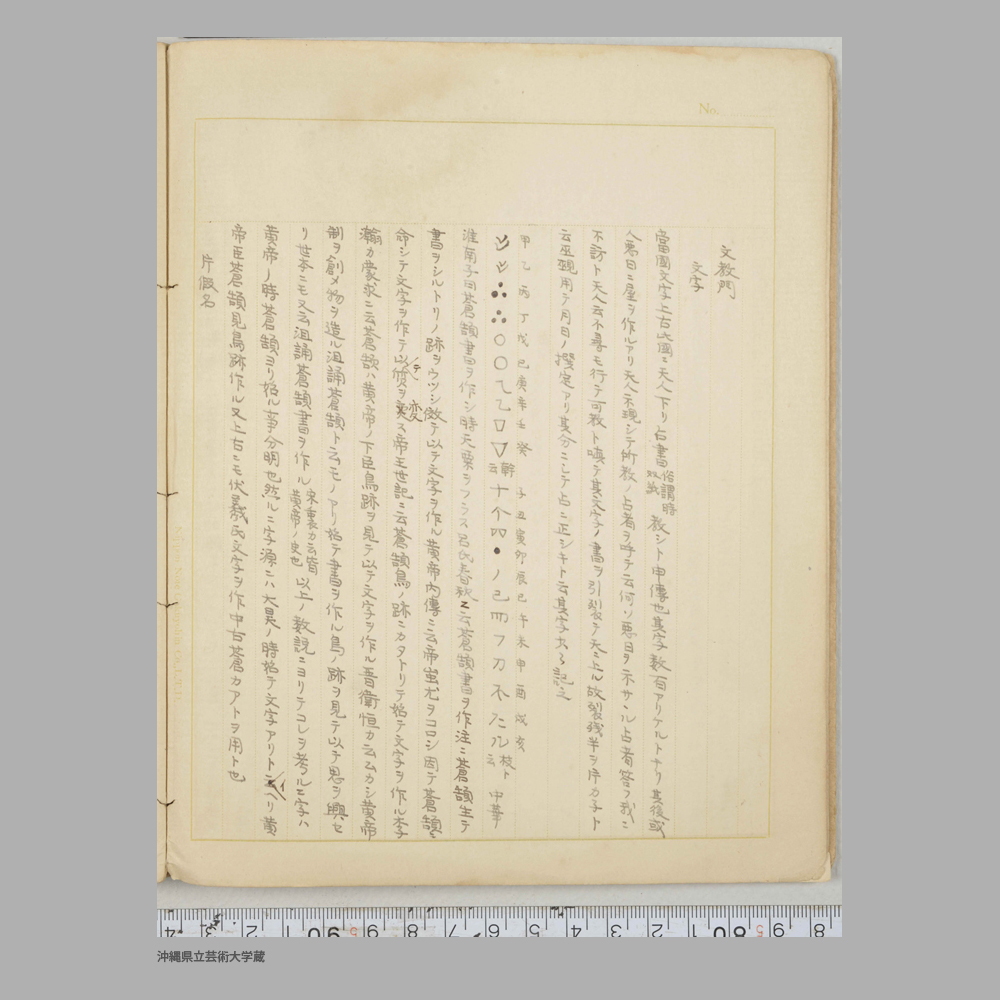 No.
文教門
文字
當國文字上古此國ニ天人下リ占書俗謂時双紙教シト申傳也其字数百アリケルトナリ其後或
人悪日ニ屋ヲ作ルアリ天人不現シテ所教ノ占者ヲ呼テ云何ソ悪日ヲ不示サル占者答フ我ニ
不訪ト天人云不尋モ行テ可教ト嗔テ其文字ノ書ヲ引裂シテ天ニ上ル故裂残半ヲ片カ子ト
云巫覡用テ月日ノ撰定アリ其分ニシテ占ニ正シキト云其字大ラ記之
甲乙丙丁戊己庚辛壬癸 子丑寅卯辰巳午未申酉戌亥
幹ト云 十个 ● ノ 己 フ刀不 枝ト云 中華
淮南子曰蒼頡書ヲ作シ時天粟ヲフラス呂氏春秋ニ云蒼頡書ヲ作注ニ蒼頡生テ
書ヲシルトリノ跡ヲウツシ倣テ以テ文字ヲ作ル黄帝内傳ニ云帝蚩尤ヲコロシ因テ蒼頡ニ
命シテ文字ヲ作テ以質ヲ変ス帝王世記ニ云蒼頡鳥ノ跡ニカタトリテ始テ文字ヲ作ル李
瀚カ蒙求ニ云蒼頡ハ黄帝ノ下臣鳥跡ヲ見テ以テ文字ヲ作ル晋衛恒カ云ムカシ黄帝
制ヲ創メ物ヲ造ル沮誦蒼頡ト云モノアリ始テ書ヲ作ル鳥ノ跡ヲ見テ以テ思ヲ興セ
リ世本ニモ又云沮誦蒼頡書ヲ作ル宋衷カ云皆黄帝ノ史也以上ノ数説ニヨリテコレヲ考ルニ字ハ
黄帝ノ時蒼頡ヨリ始ル事分明也然ルニ字源ニハ大昊ノ時始テ文字アリト云ヘリ黄
帝臣蒼頡見鳥跡作ル又上古ニモ伏羲氏文字ヲ作中古蒼カアトヲ用ト也
片假名
沖縄県立芸術大学蔵